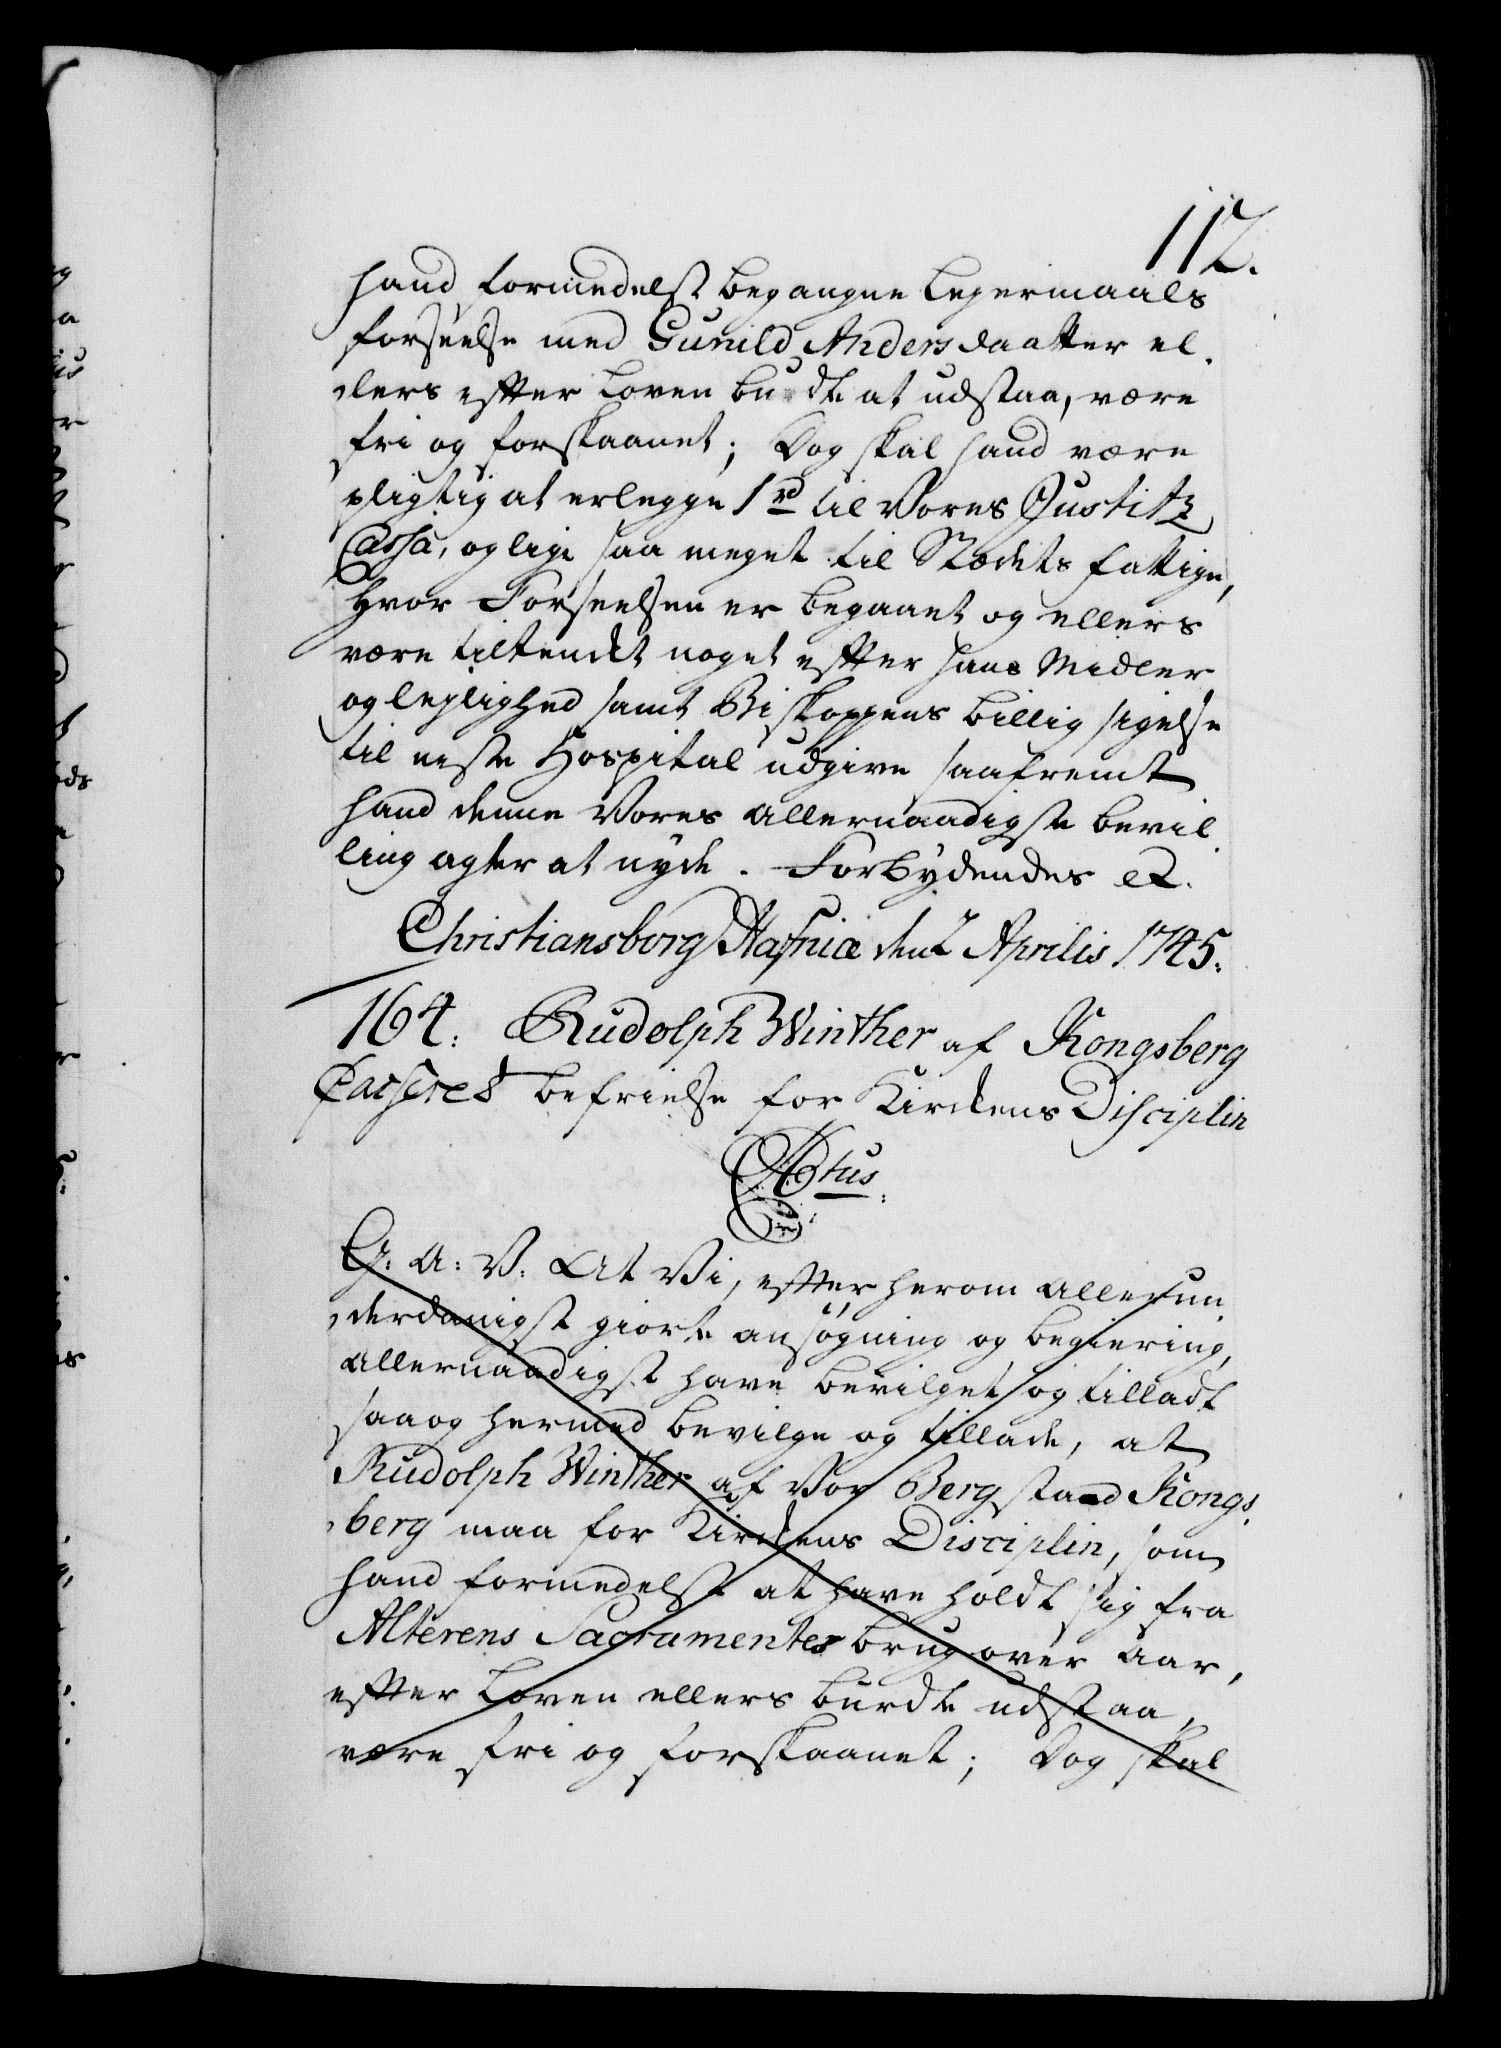 112.
hand formedelst begangne Lejermaals
forseelse med Gunild Andersdaatter el-
ders efter Loven burdte at udstaa, være
fri og forskaanet; Dog skal hand være
pligtig at erlegge 1 rd til Vores Justitz
Cassa, og lige saa meget til Stædets fattige,
hvor Forseelsen er begaaet og ellers
være tiltenckt noget efter hans Midler
og lejlighed samt Biskoppens billig sigelse
til neste Hospital udgive saafremt
hand denne Vores allernaadigste bevil
ling agter at nyde. Forbydendes etc.
Christiansborg Hafniæ den 2 Aprilis 1745.
164. Rudolph Winther af Kongsberg
befrielse for Kirckens Disciplin
G: A: V: At Vi, efter herom allerun
derdanigst giorte ansøgning og begiering,
allernaadigst have bevilget og tilladt
saa og hermed bevilge og tillade, at
Rudolph Winther af Vor Bergstad Kongs
berg maa for Kirckens Disciplin, som
hand formedelst at have holdt sig fra
Alterens Sacramentes brug over Aar,
efter Loven ellers burdte udstaa,
være fri og forskaanet; Dog skal